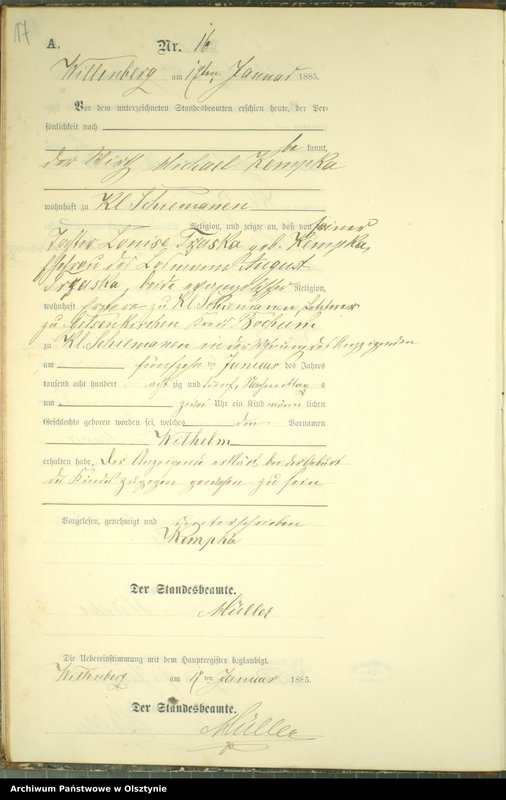 17
A.
Nr. 16
Wittenberg am 17ten Januar 1885.
Vor dem unterzeichneten Standesbeamten erschien heute, der Per-
sönlichkeit nach
be kannt,
der Wirth Michael Kempka
wohnhaft zu Kl. Schiemanen
Religion, und zeigte an, daß von seiner
Tochter Louise Trzaska geb. Kempka,
Ehefrau des Losmann August
Trzaska, beide evangelischer Religion,
wohnhaft Erstere zu Kl. Schiemanen, Letzterer
zu Gelsenkirchen Kreis Bochum
zu Kl. Schiemanen in der Wohnung des Anzeigenden
am fünfzehnten Januar des Jahres
tausend acht hundert acht zig und fünf, Nachmittags
um zwei Uhr ein Kind männlichen
Geschlechts geboren worden sei, welches den Vornamen
Wilhelm
erhalten habe. Der Anzeigende erklärt, bei der Geburt
des Kindes zugegen gewesen zu sein
Vorgelesen, genehmigt und unterschrieben
Kempka
Der Standesbeamte.
Müller
Die Uebereinstimmung mit dem Hauptregister beglaubigt.
Wittenberg am 17ten Januar 1885.
Der Standesbeamte.
Müller
Archiwum Państwowe w Olsztynie